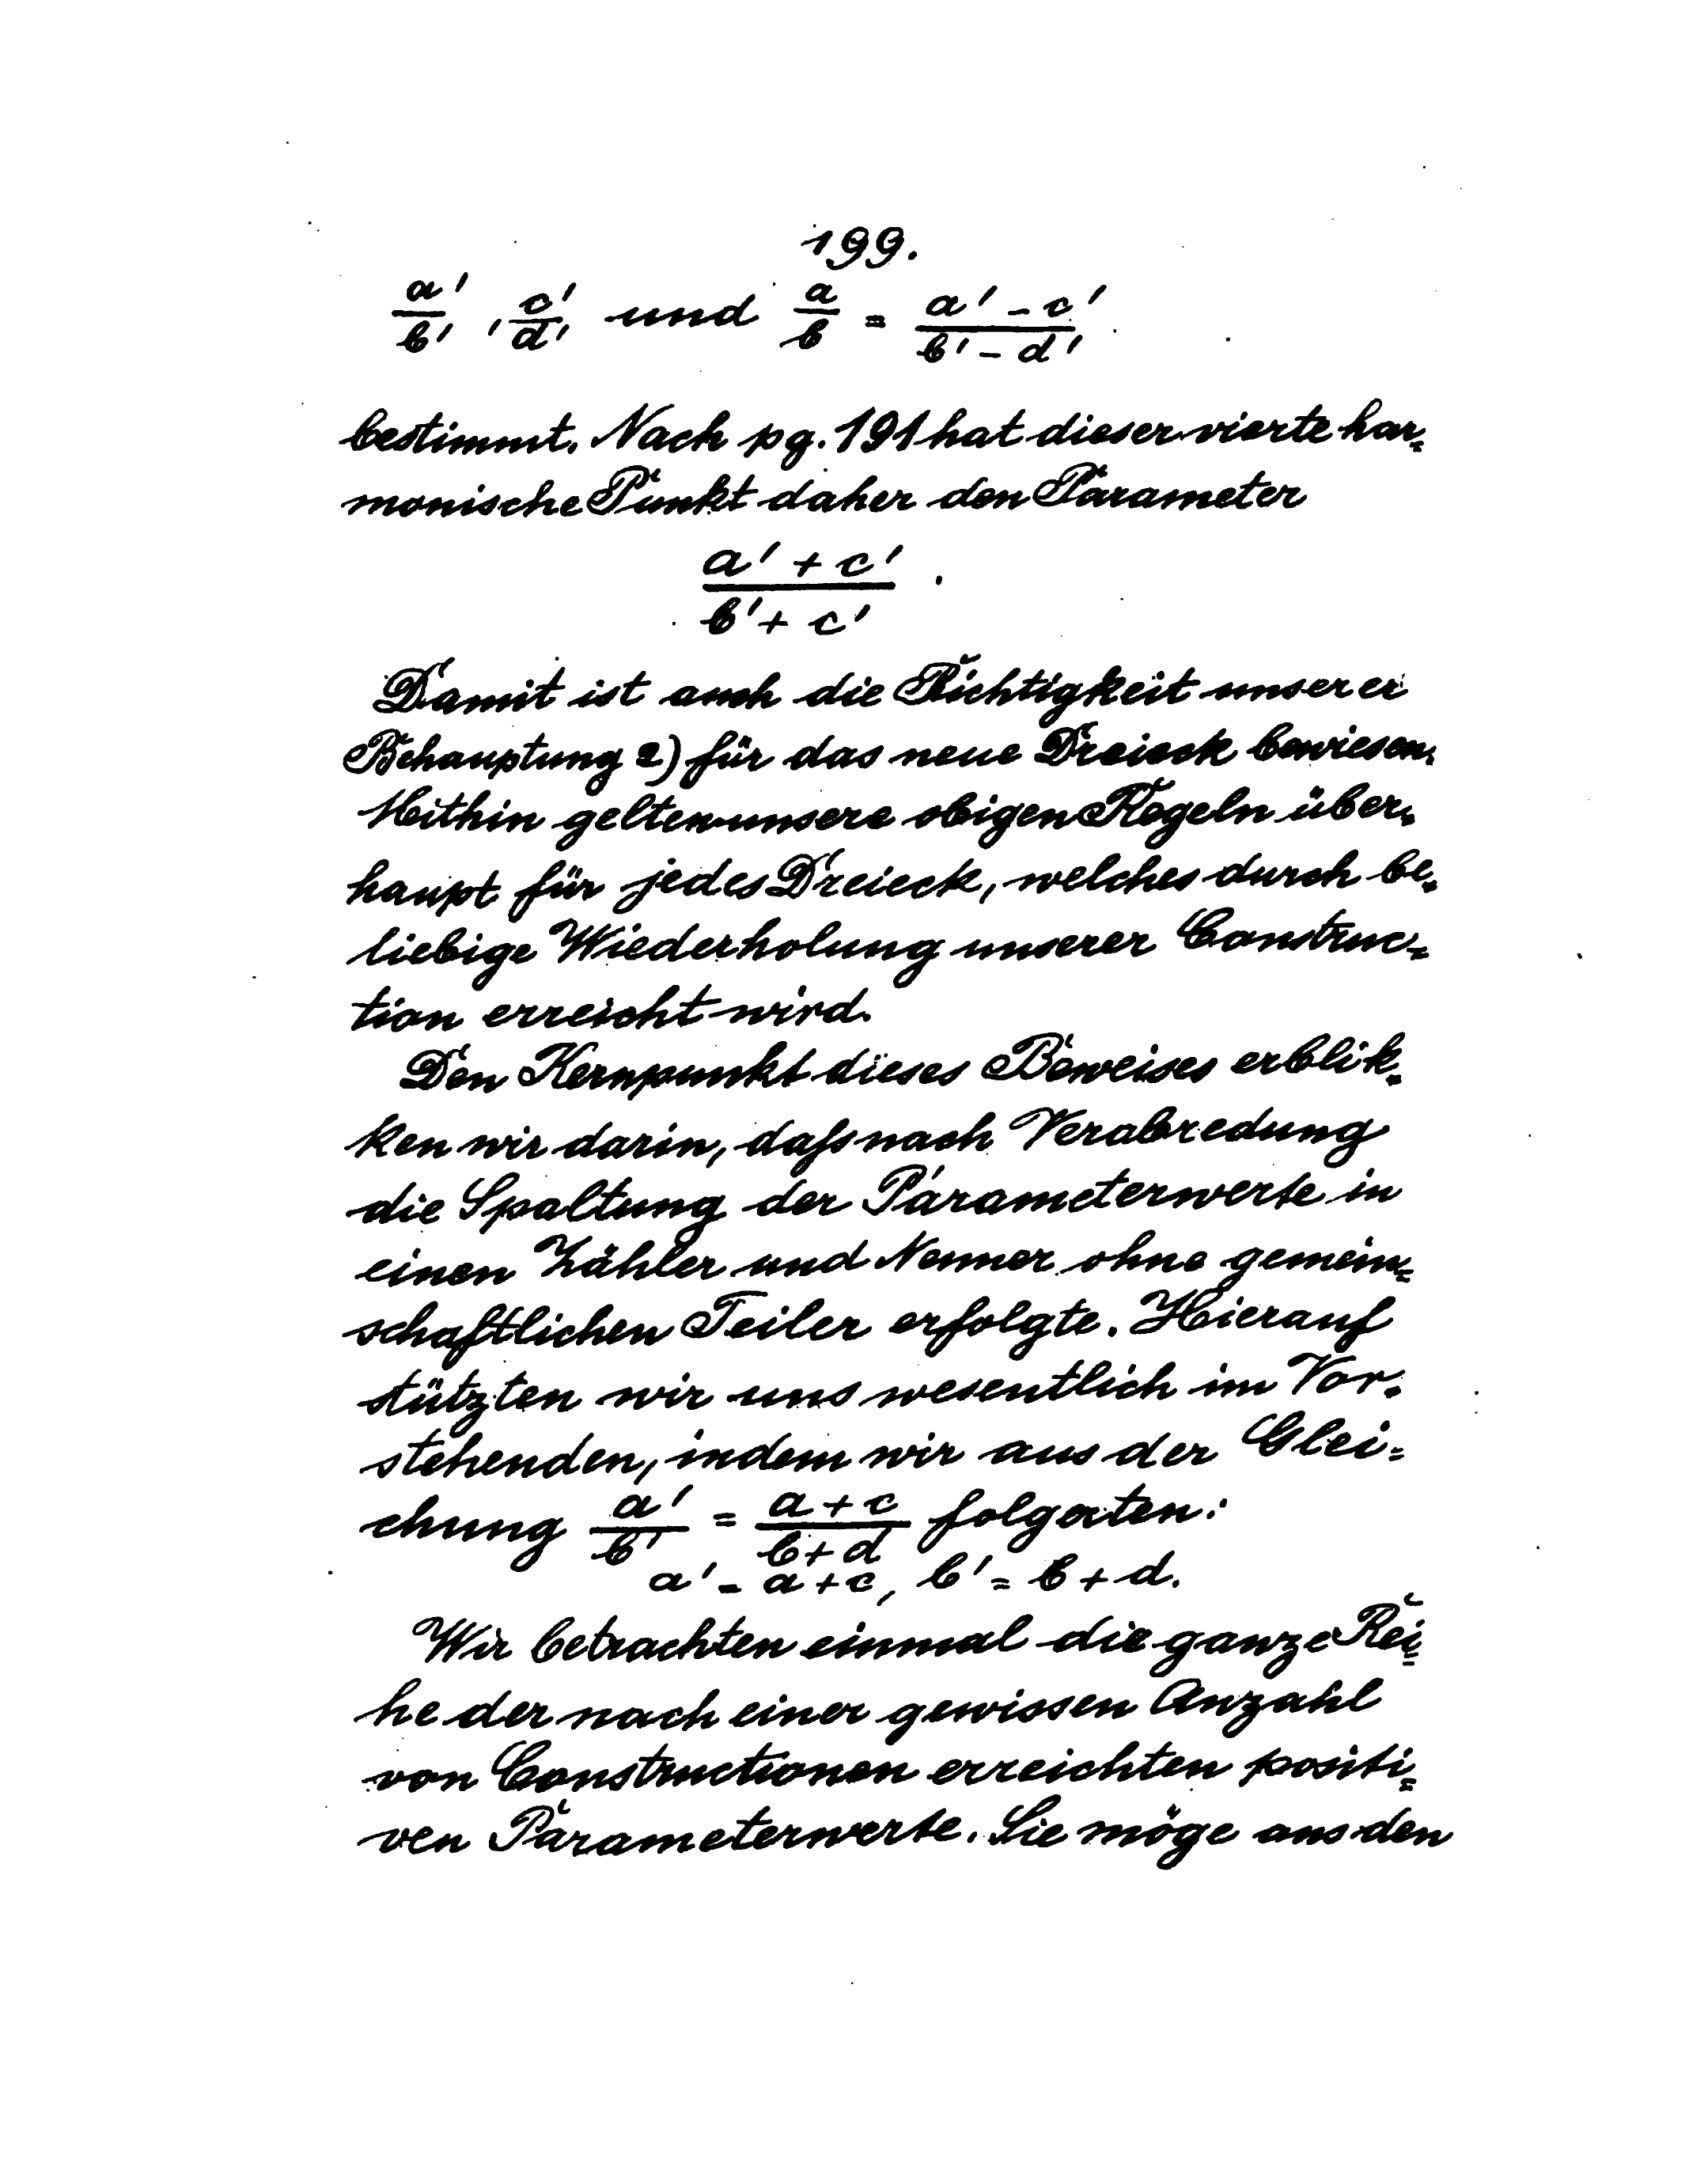 199.
a'/b', c'/d' und a/b = (a' - c')/(b' - d')
bestimmt. Nach pg. 191 hat dieser vierte har=
monische Punkt daher den Parameter
(a' + c')/(b' + c') .
Damit ist auch die Richtigkeit unserer
Behauptung 2) für das neue Dreieck bewiesen.
Mithin gelten unsere obigen Regeln über=
haupt für jedes Dreieck, welches durch be=
liebige Wiederholung unserer Construc=
tion erreicht wird.
Den Kernpunkt dieses Beweises erblik=
ken wir darin, daſs nach Verabredung
die Spaltung der Parameterwerte in
einen Zähler und Nenner ohne gemein=
schaftlichen Teiler erfolgte. Hierauf
stützten wir uns wesentlich im Vor=
stehenden, indem wir aus der Glei=
chung a'/b' = (a + c)/(b + d) folgerten:
a' = a + c, b' = b + d.
Wir betrachten einmal die ganze Rei=
he der nach einer gewissen Anzahl
von Constructionen erreichten positi=
ven Parameterwerte. Sie möge aus den